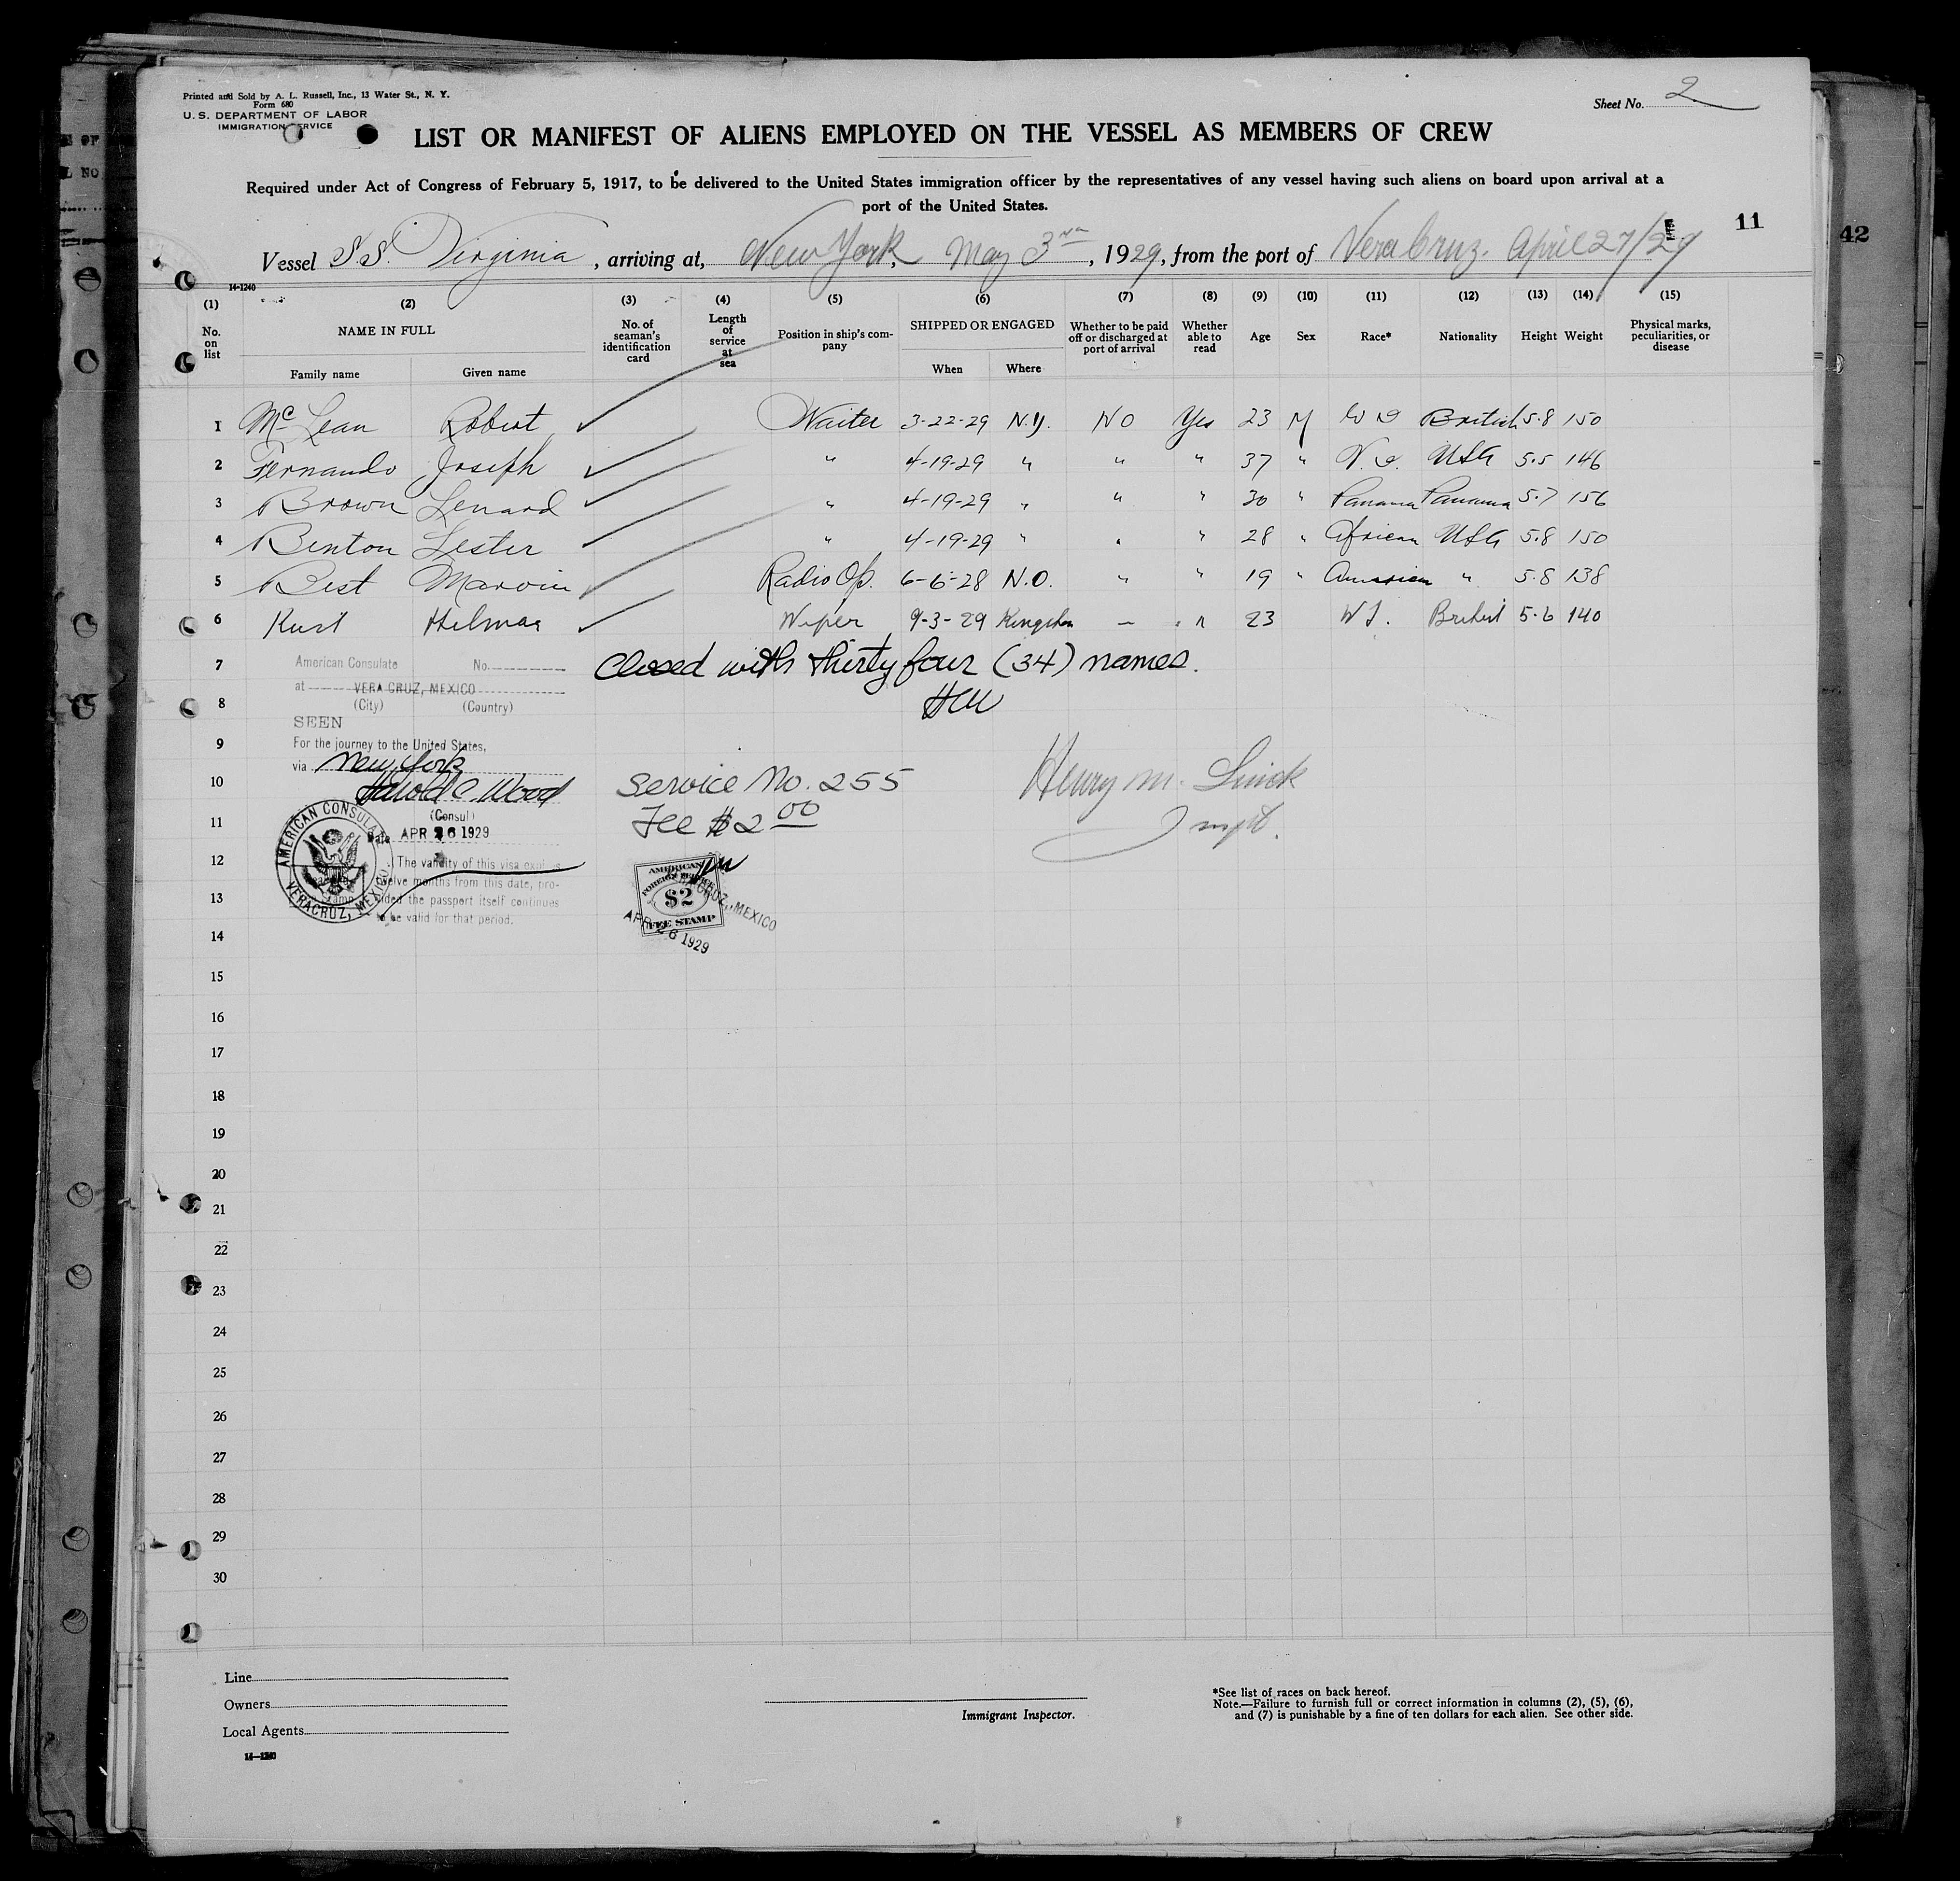 Printed and Sold by A. L. Russell, Inc., 13 Water St., N. Y.
Form 680
U. S. DEPARTMENT OF LABOR
IMMIGRATION SERVICE
Sheet No. 2
LIST OR MANIFEST OF ALIENS EMPLOYED ON THE VESSEL AS MEMBERS OF CREW
Required under Act of Congress of February 5, 1917, to be delivered to the United States immigration officer by the representatives of any vessel having such aliens on board upon arrival at a
port of the United States.
11
42
Vessel S.S. Virginia, arriving at, New York, May 3rd, 1929, from the port of Vera Cruz. April 27/29
14-1240
(1) (2) (3) (4) (5) (6) (7) (8) (9) (10) (11) (12) (13) (14) (15)
No. on list NAME IN FULL No. of seaman's identification card Length of service at sea Position in ship's company SHIPPED OR ENGAGED Whether to be paid off or discharged at port of arrival Whether able to read Age Sex Race* Nationality Height Weight Physical marks, peculiarities, or disease
Family name Given name When Where
1 McLean Robert Waiter 3-22-29 N.Y. NO Yes 23 M W I British 5.8 150
2 Fernando Joseph " 4-19-29 " " " 37 " W.I. USA 5.5 146
3 Brown Lenard " 4-19-29 " " " 30 " Panama Panama 5.7 156
4 Benton Lester " 4-19-29 " " " 28 " African USA 5.8 150
5 Best Marvin Radio Op. 6-6-28 N.O. " " 19 " American " 5.8 138
6 Hilmar Wiper 9-3-29 Kingston – " 23 W I. British 5.6 140
7 Closed with thirty four (34) names.
American Consulate No.
at VERA CRUZ, MEXICO
(City) (Country)
8
SEEN
9 For the journey to the United States,
via New York
10 Harold C. Wood Service No. 255 Henry M.
(Consul)
11 Date APR 26 1929 Fee $2 00 Inspt.
AMERICAN CONSULATE
VERACRUZ, MEXICO
12 The validity of this visa expires
twelve months from this date, pro-
13 vided the passport itself continues
to be valid for that period.
AMERICAN
FOREIGN SERVICE
$2
FEE STAMP
VERACRUZ, MEXICO
APR 26 1929
14
15
16
17
18
19
20
21
22
23
24
25
26
27
28
29
30
Line
Owners
Local Agents
14—1240
Immigrant Inspector.
*See list of races on back hereof.
Note.—Failure to furnish full or correct information in columns (2), (5), (6),
and (7) is punishable by a fine of ten dollars for each alien. See other side.